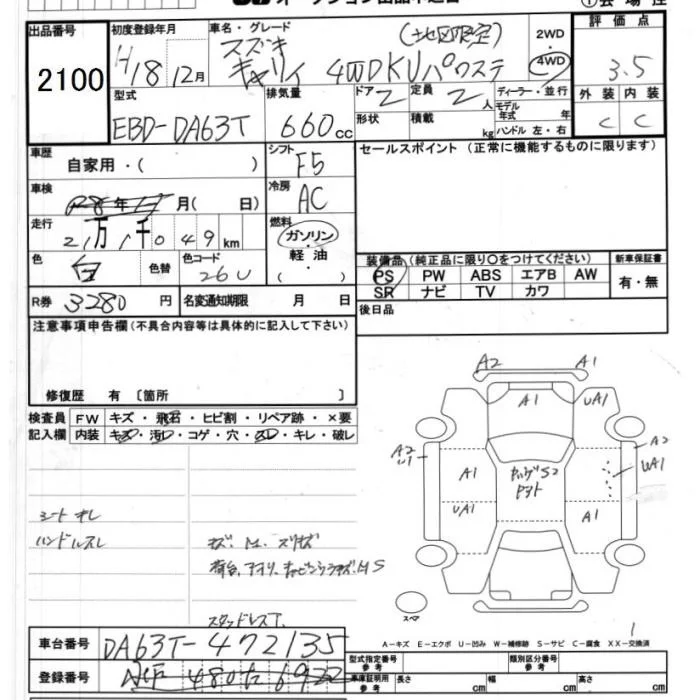 出品番号 初度登録年月 車名・グレード (地区限定) 2WD 評価点
2100 H18 12月 スズキ キャリイ 4WD KU パワステ 4WD 3.5
型式 排気量 ドア 定員 ディーラー・並行 外装 内装
EBD-DA63T 660cc 2 2人 モデル年式 年 C C
形状 積載 kg ハンドル 左・右
車歴 シフト セールスポイント (正常に機能するものに限ります)
自家用・( ) F5
車検 冷房
月( 日) AC
走行 燃料
2万1千049km ガソリン
色 色替 色コード 軽油 装備品(純正品に限り○をつけてください) 新車保証書
白 26U ・( ) PS PW ABS エアB AW 有・無
SR ナビ TV カワ
R券 3280円 名変通知期限 月 日 後日品
注意事項申告欄(不具合内容等は具体的に記入して下さい)
修復歴 有 〔箇所 〕
検査員 FW キズ・飛石・ヒビ割・リペア跡・×要
記入欄 内装 キズ・汚レ・コゲ・穴・スレ・キレ・破レ
A2 A1
A1 UA1
A2 A2
A1 UA1
UA1 A1
シートキレ
ハンドルスレ
スタッドレスT.
スペア
A-キズ E-エクボ U-凹み W-補修跡 S-サビ C-腐食 XX-交換済
車台番号 DA63T-472135
型式指定番号 参考 類別区分番号 参考
登録番号 480 6922
車庫証明用 参考 長さ cm 幅 cm 高さ cm